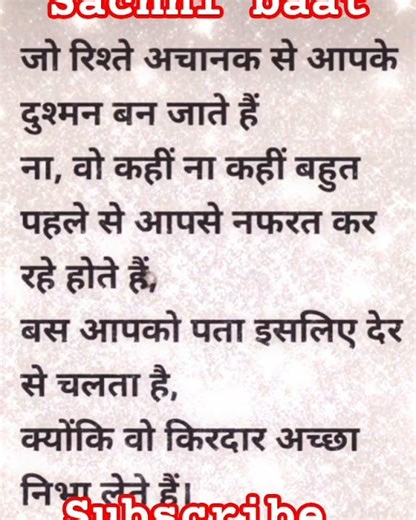 sachhi baat
जो रिश्ते अचानक से आपके
दुश्मन बन जाते हैं
ना, वो कहीं ना कहीं बहुत
पहले से आपसे नफरत कर
रहे होते हैं,
बस आपको पता इसलिए देर
से चलता है,
क्योंकि वो किरदार अच्छा
निभा लेते हैं।
Subscribe